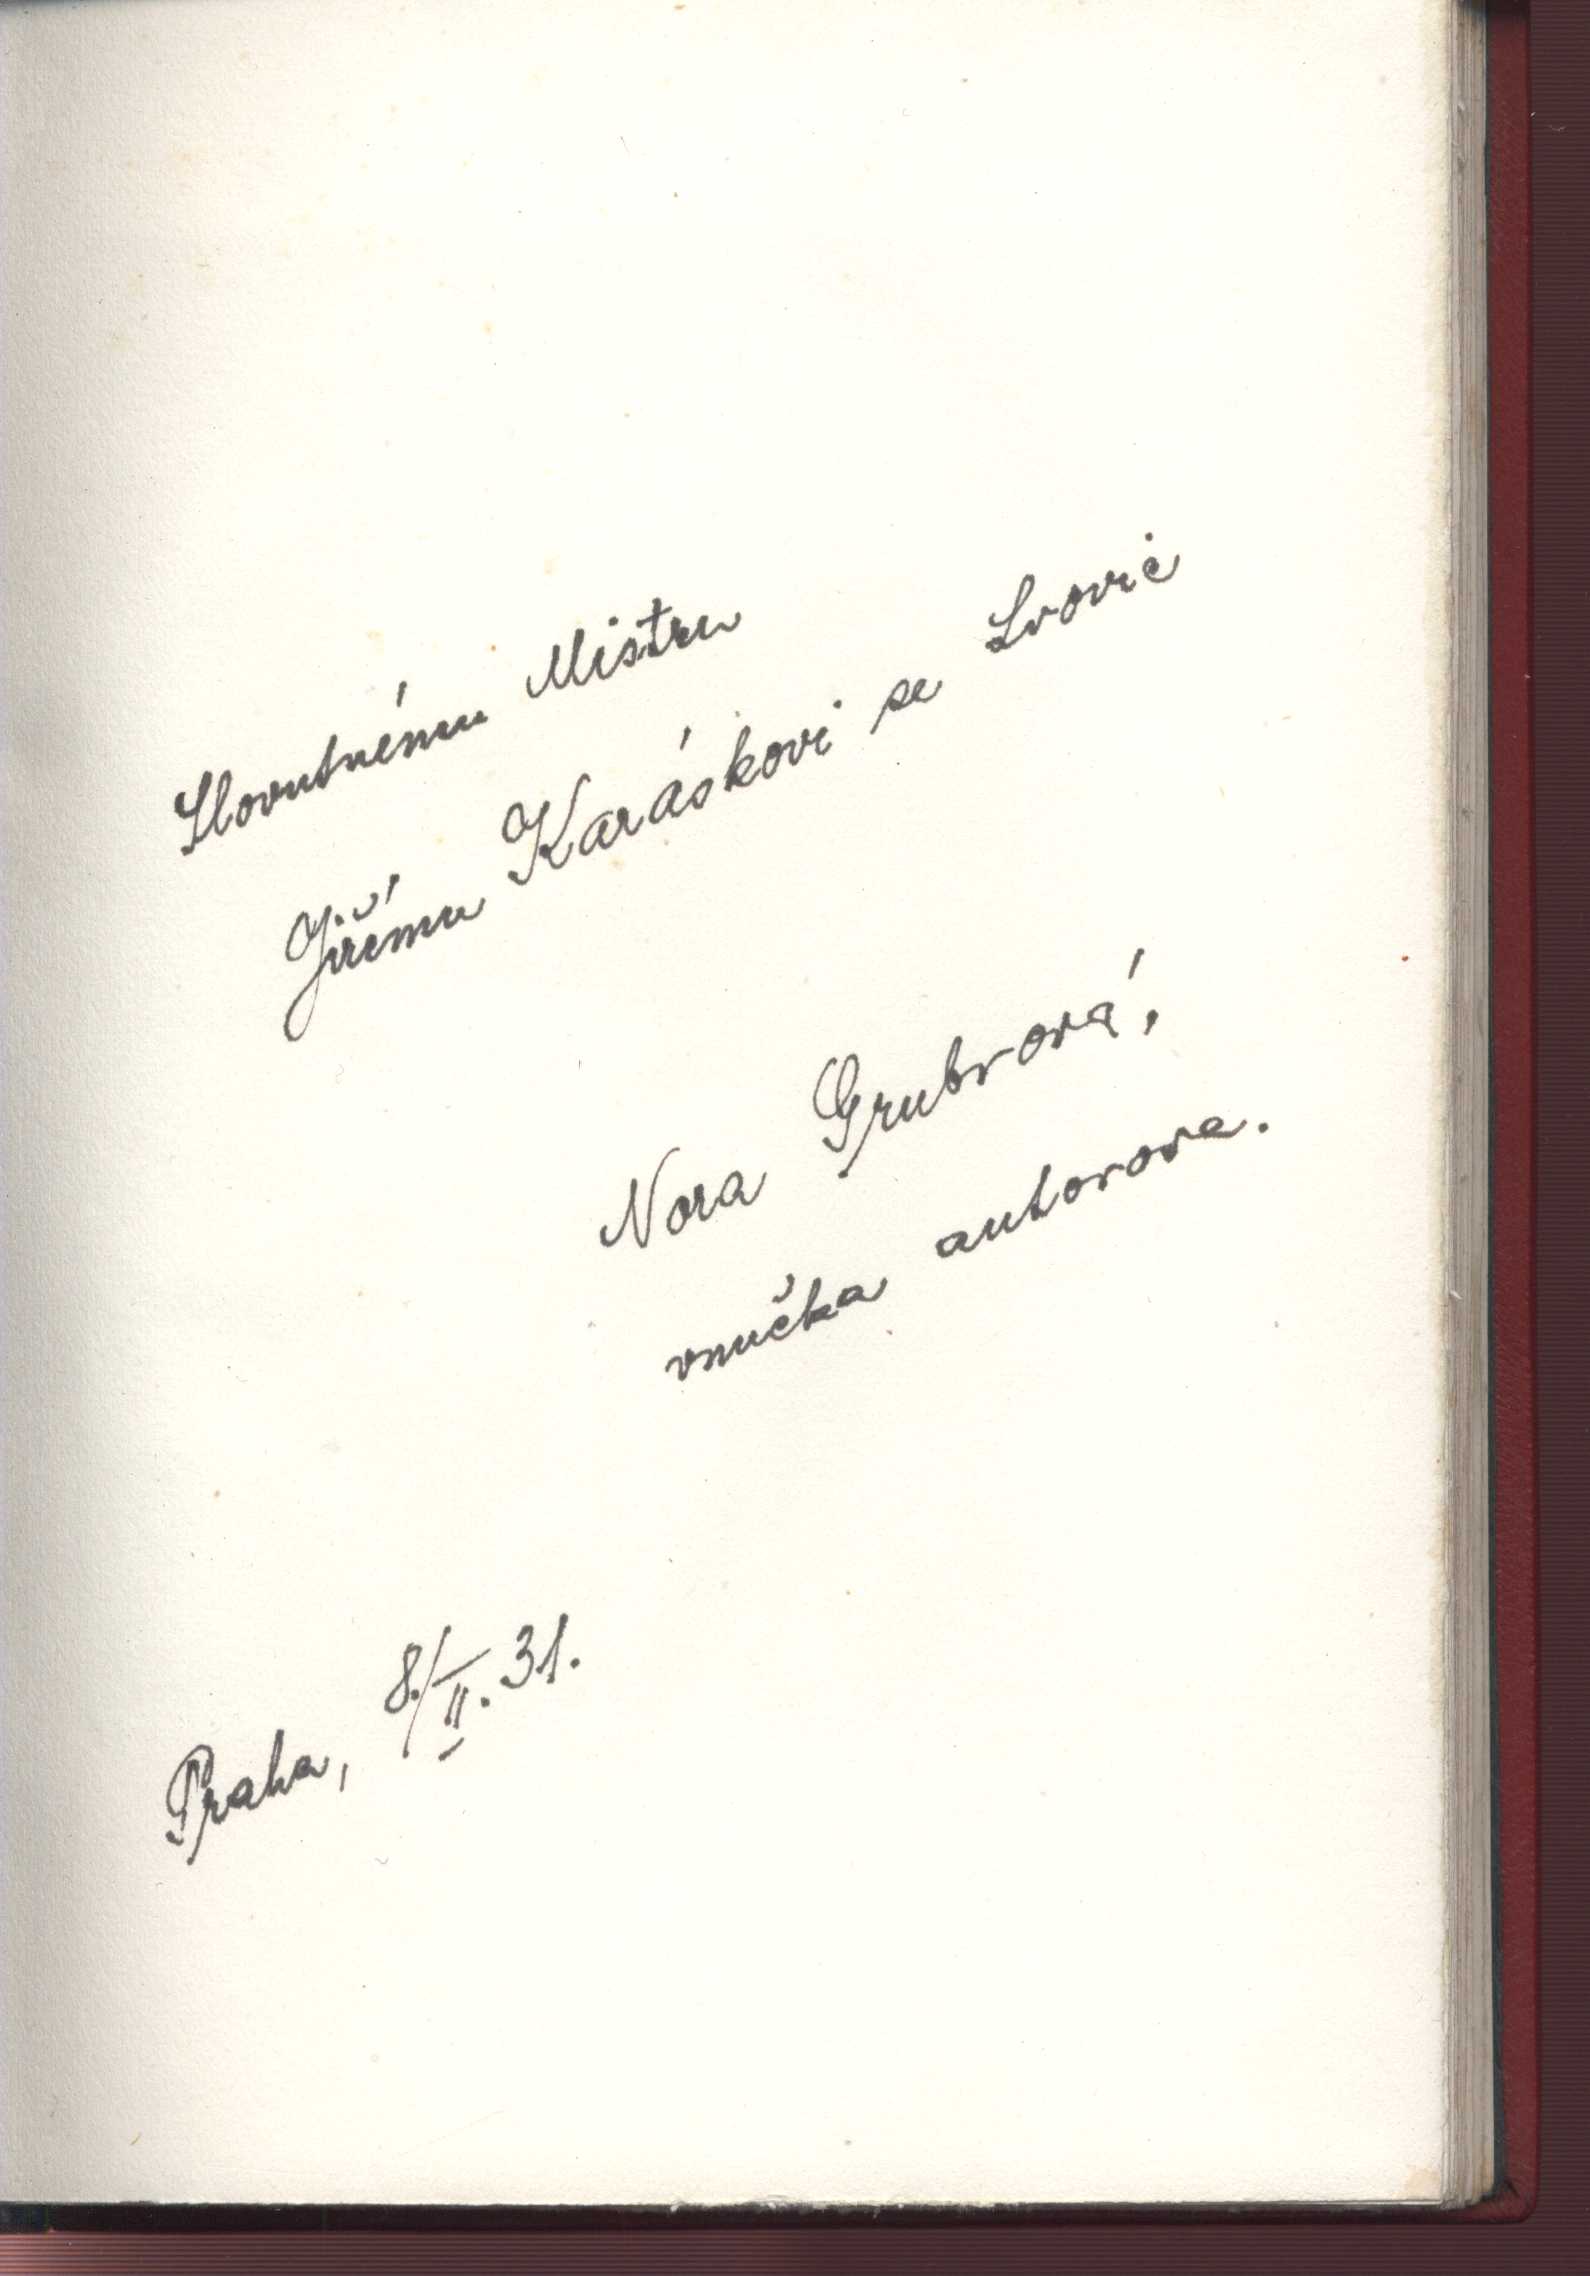 Slovutnému Mistru
Jiřímu Karáskovi se Lvovic
Nora Grubrová,
vnučka autorova.
Praha, 8./II. 31.